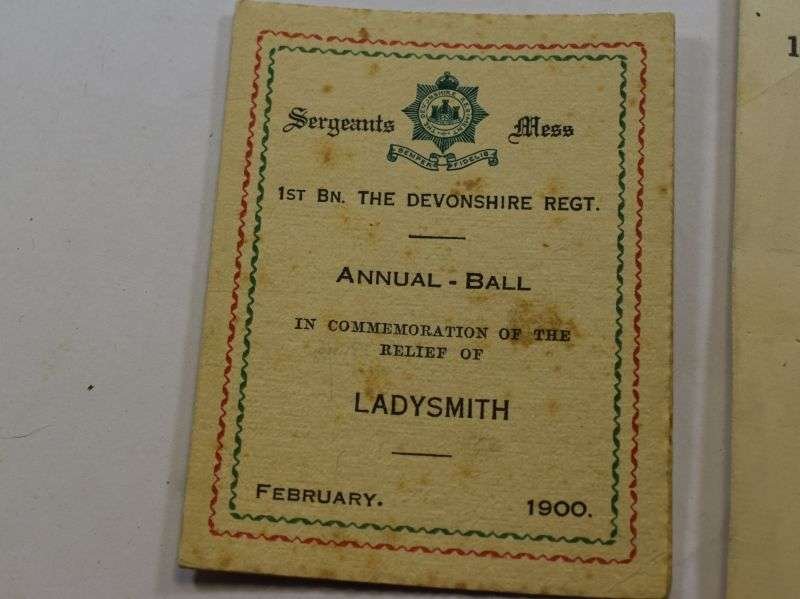 Sergeants Mess
THE DEVONSHIRE REGIMENT
SEMPER FIDELIS
1ST BN. THE DEVONSHIRE REGT.
ANNUAL - BALL
IN COMMEMORATION OF THE
RELIEF OF
LADYSMITH
FEBRUARY. 1900.
1